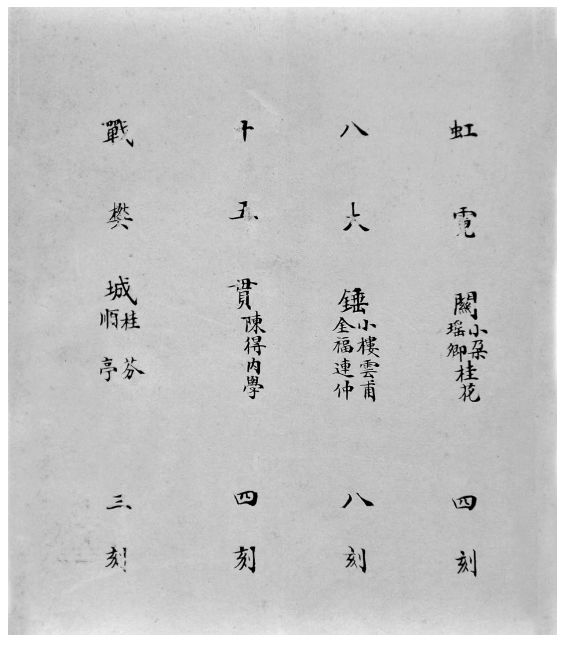 虹霓關 小朶桂花 瑶卿 四刻
八大錘 小樓雲甫 全福連仲 八刻
十五貫 陳得內學 四刻
戰樊城 桂芬 順亭 三刻